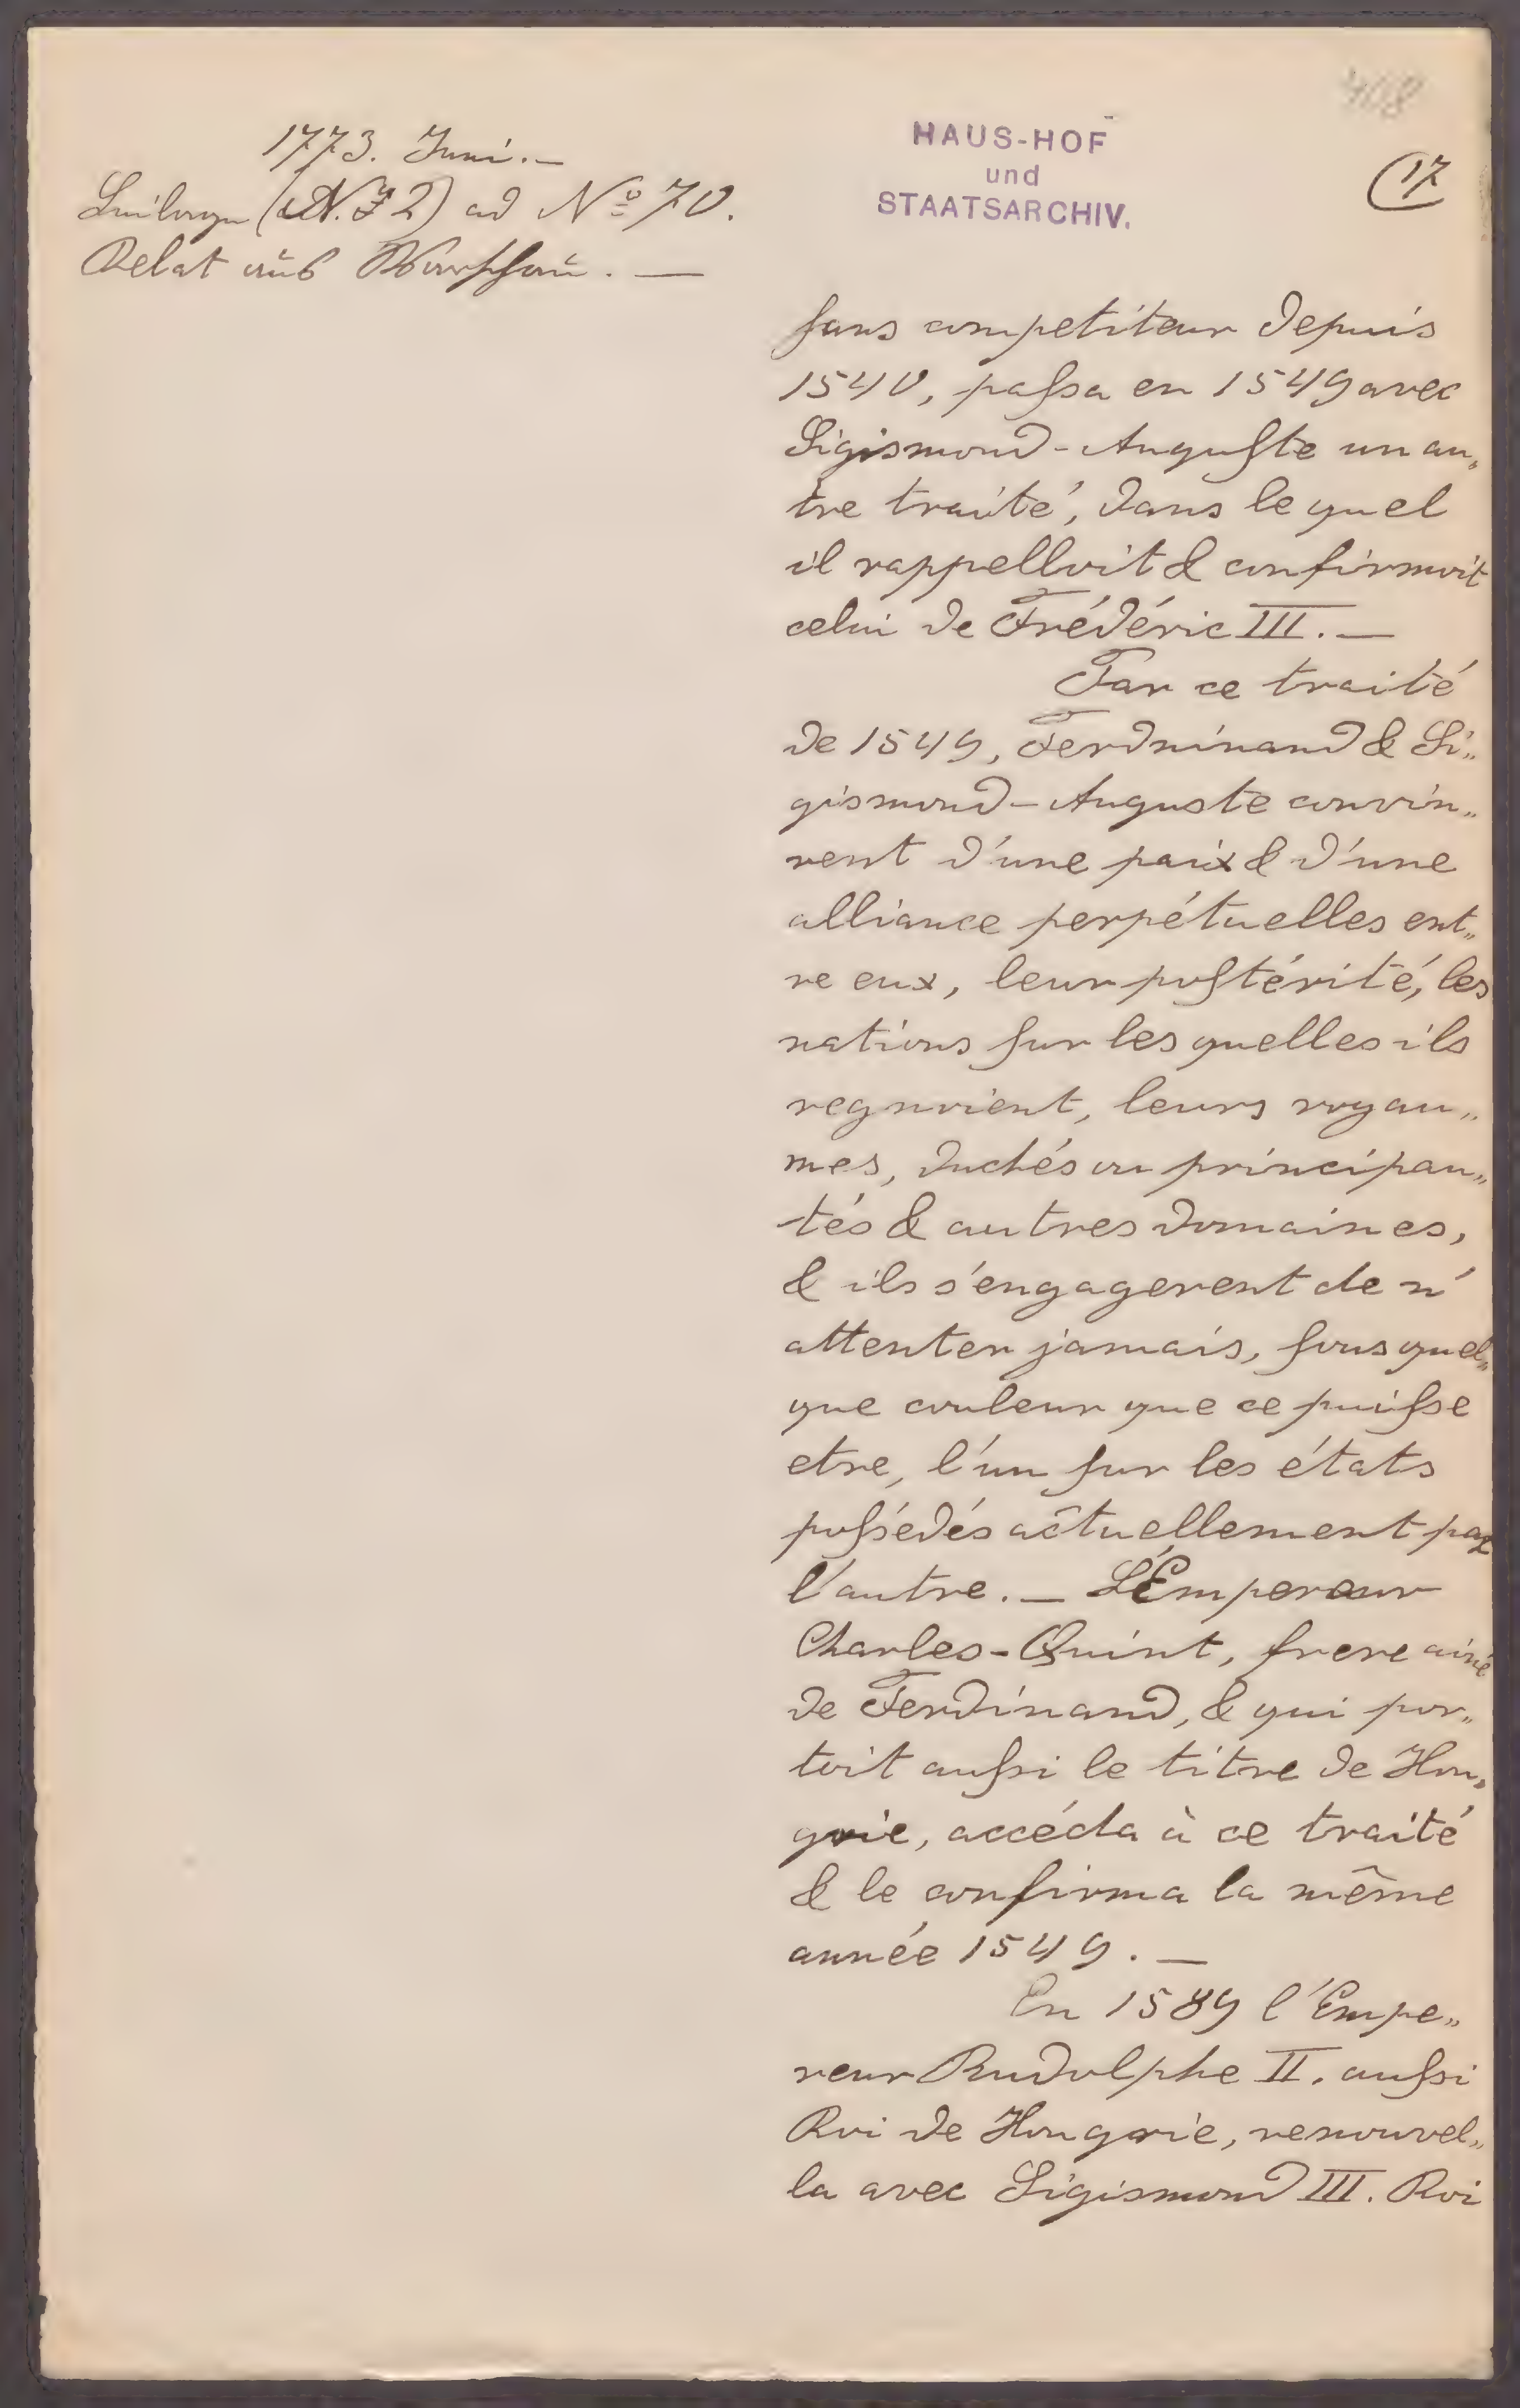 408
HAUS-HOF
und
STAATSARCHIV.
17
1773. Juni. —
Beilage (N. 2) ad No 70.
Relat aus Warschau. —
sans competiteur depuis
1540, passa en 1549 avec
Sigismond-Auguste un au„
tre traité, dans le quel
il rappelloit & confirmoit
celui de Frédéric III. —
Par ce traité
de 1549, Ferdninand & Si„
gismond-Auguste convin„
rent d'une paix & d'une
alliance perpétuelles ent„
re eux, leur postérité, les
nations sur les quelles ils
regnoient, leurs royau„
mes, duchés ou principau„
tés & autres domaines,
& ils s'engagerent de n'
attenter jamais, sous quel„
que couleur que ce puisse
etre, l'un sur les états
possédés actuellement par
l'autre. — L'Empereur
Charles-Quint, frere ainé
de Ferdinand, & qui por„
toit aussi le titre de Hon„
grie, accéda à ce traité
& le confirma la même
année 1549. —
En 1589 l'Empe„
reur Rudolphe II. aussi
Roi de Hongrie, renouvel„
la avec Sigismond III. Roi